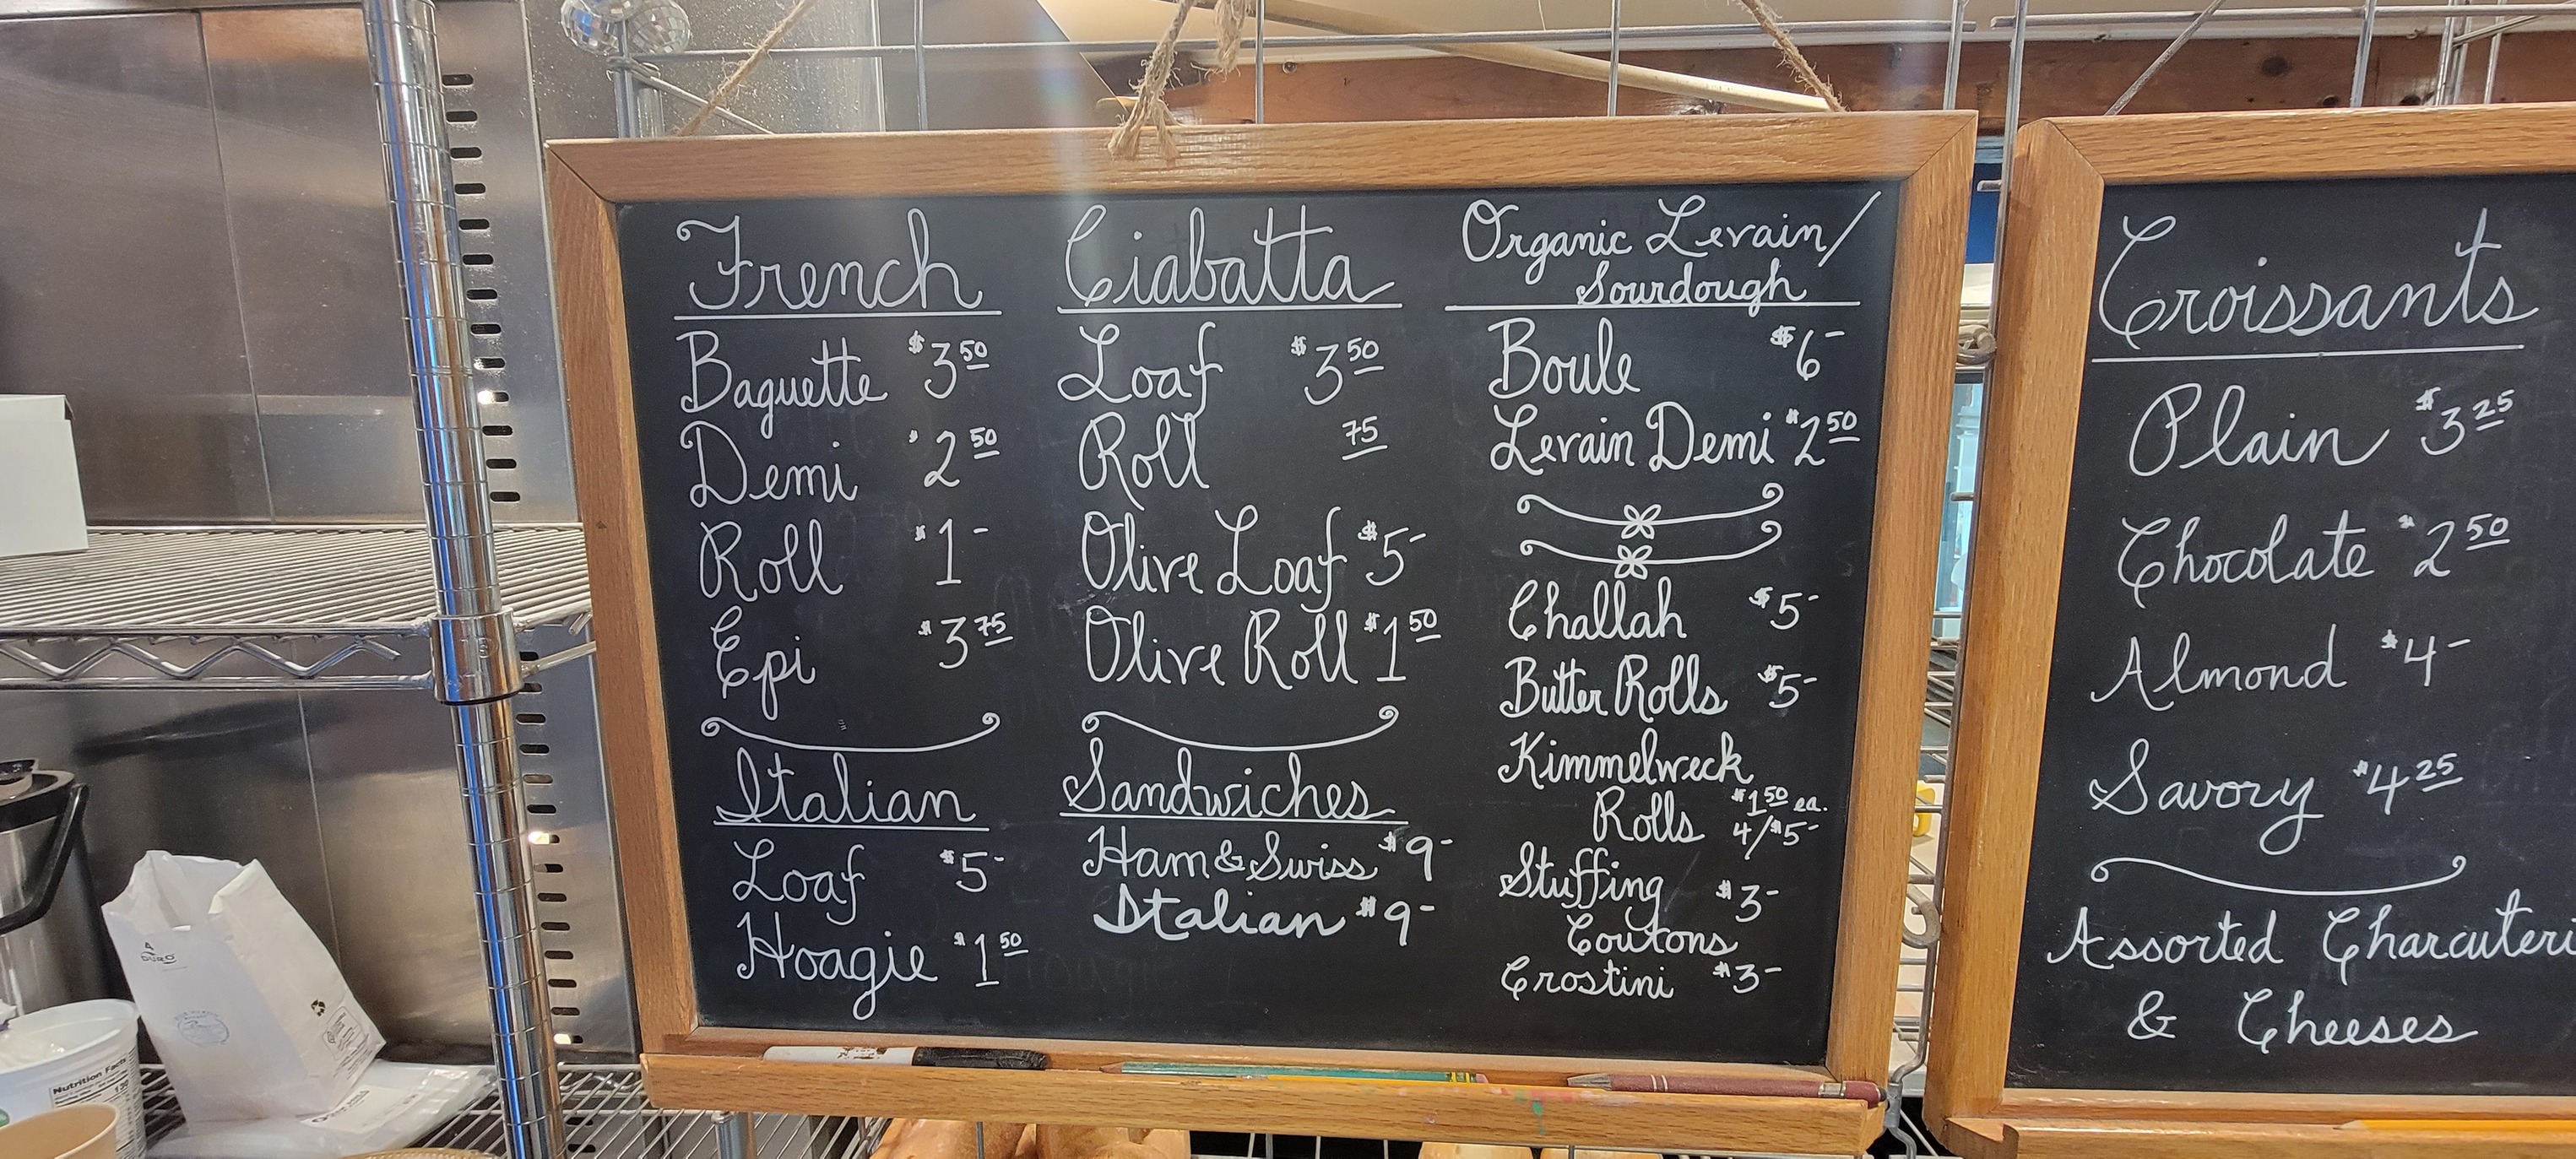 French
Baguette $3 50
Demi $2 50
Roll $1-
Epi $3 75
Italian
Loaf $5-
Hoagie $1 50
Ciabatta
Loaf $3 50
Roll 75
Olive Loaf $5-
Olive Roll $1 50
Sandwiches
Ham & Swiss $9-
Italian $9-
Organic Levain/
Sourdough
Boule $6-
Levain Demi $2 50
Challah $5-
Butter Rolls $5-
Kimmelweck
Rolls $1 50 ea.
4/$5-
Stuffing $3-
Coutons
Crostini $3-
Croissants
Plain $3 25
Chocolate $2 50
Almond $4-
Savory $4 25
Assorted Charcuteri
& Cheeses
DURO
Nutrition Facts